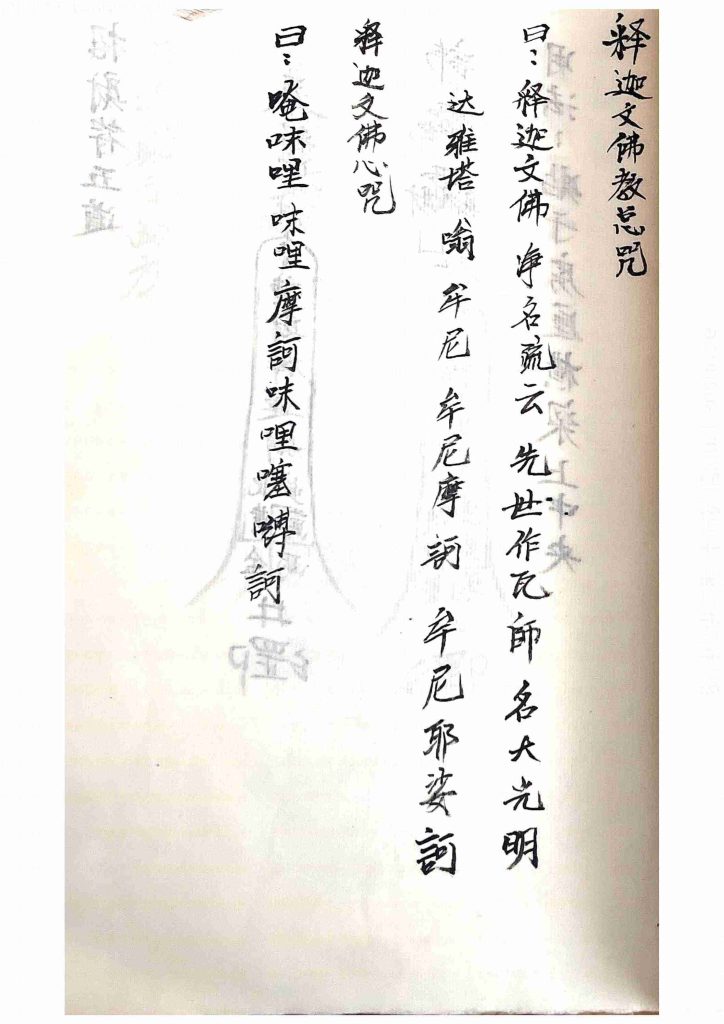 释迦文佛教总咒
曰：释迦文佛 净名疏云 先世作瓦師 名大光明
达雅塔 嗡 牟尼 牟尼摩 訶 牟尼耶娑訶
释迦文佛心咒
曰：唵味哩 味哩摩訶味哩噻嚩訶